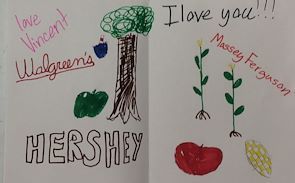 love
Vincent
Walgreen's
HERSHEY
I love you!!!
Massey Ferguson